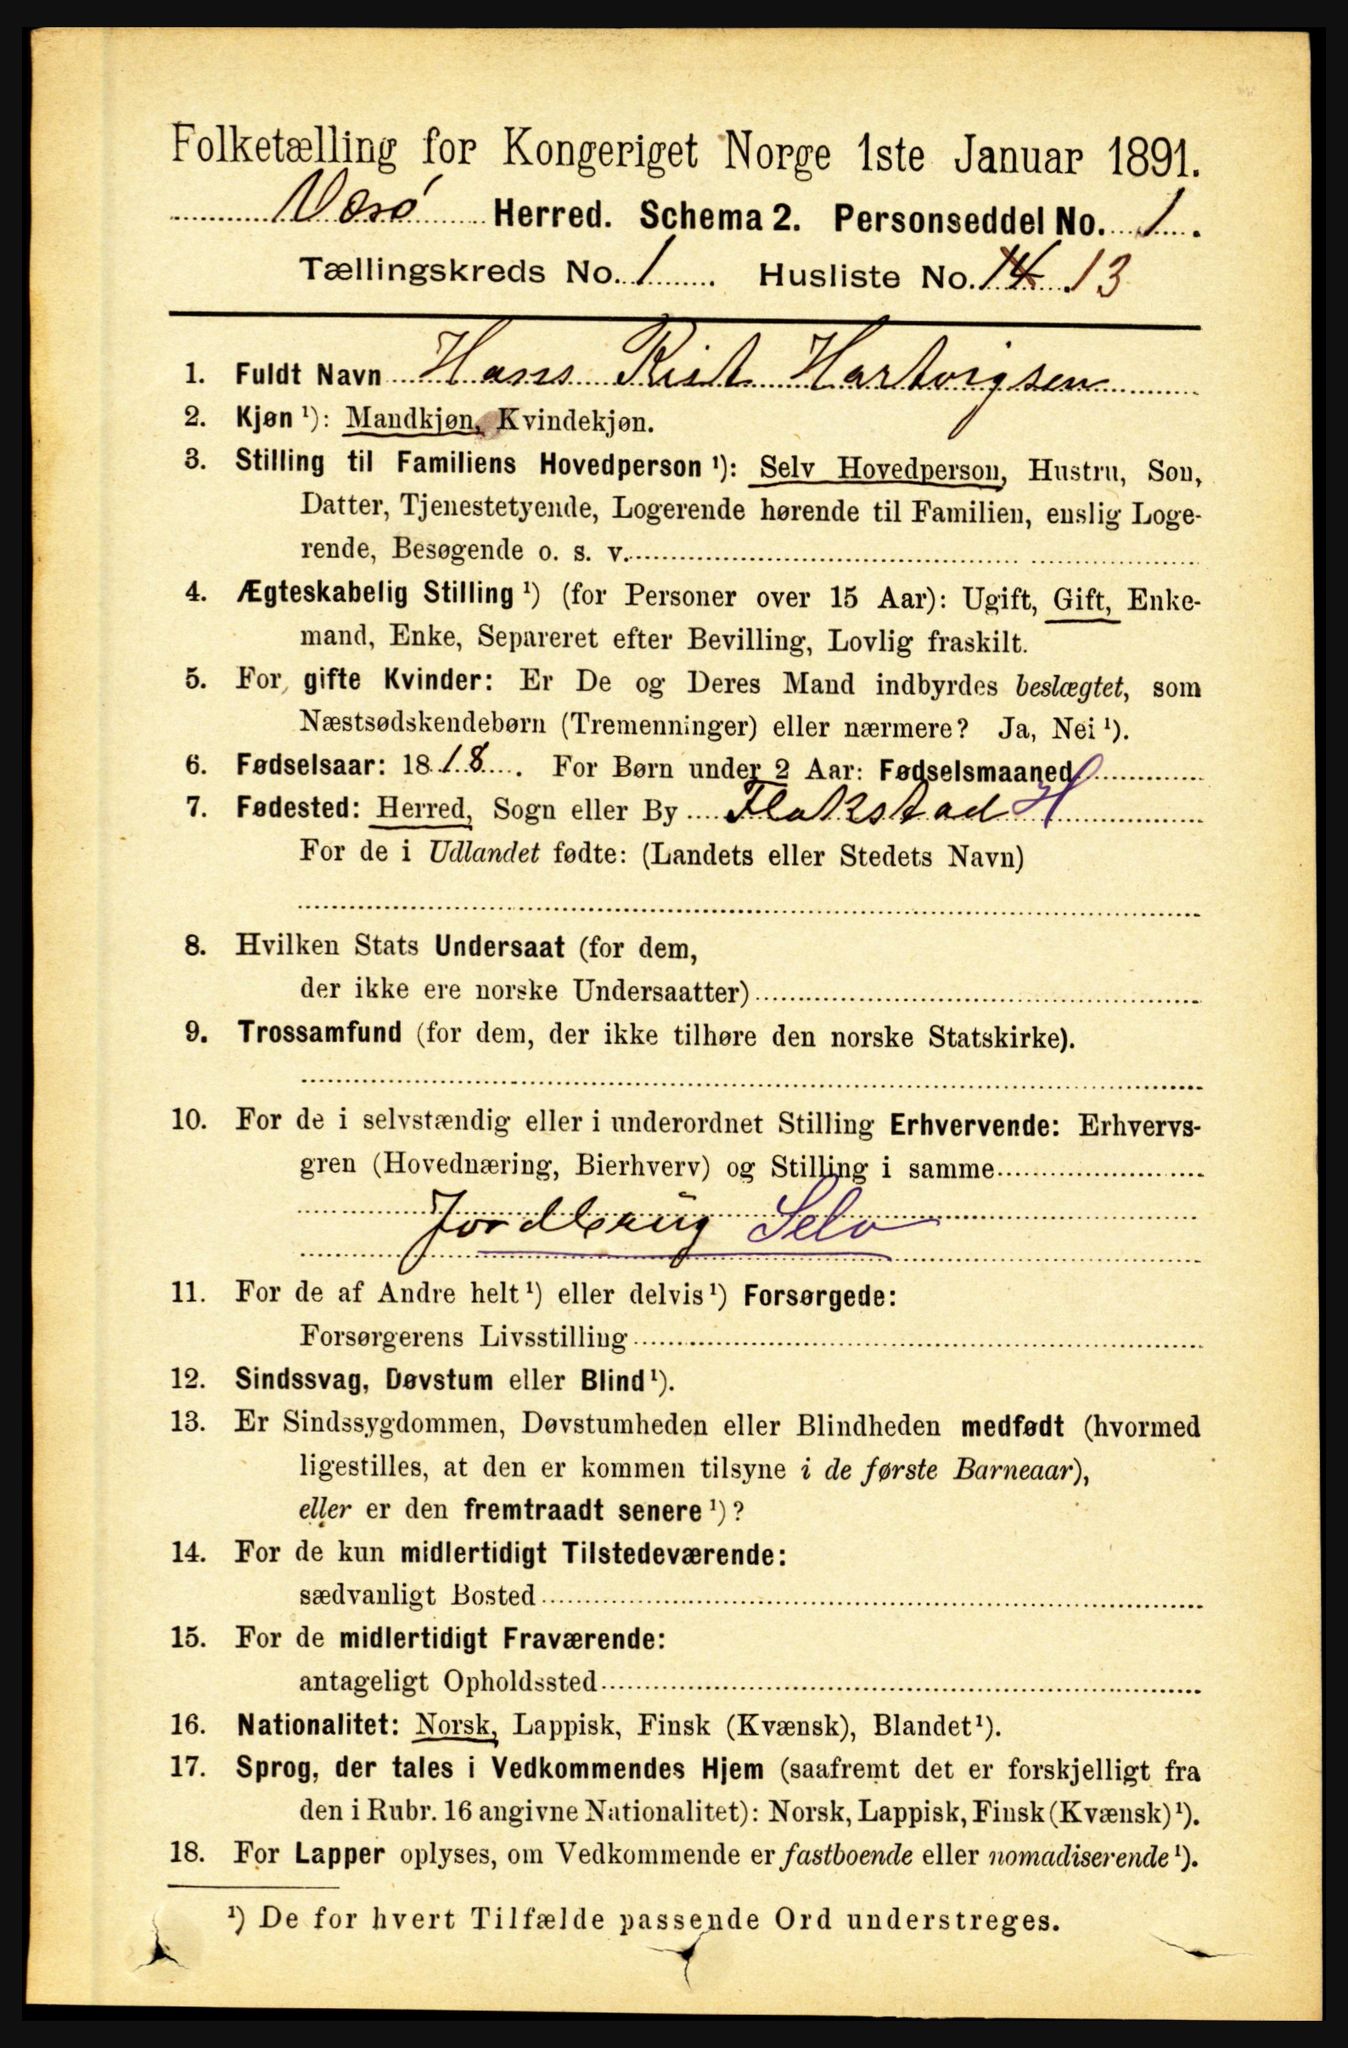 Folketælling for Kongeriget Norge 1ste Januar 1891.
Værø Herred. Schema 2. Personseddel No. 1.
Tællingskreds No. 1. Husliste No. 14. 13
1. Fuldt Navn Hans Kist Hartvigsen
2. Kjøn ¹): Mandkjøn, Kvindekjøn.
3. Stilling til Familiens Hovedperson ¹): Selv Hovedperson, Hustru, Søn,
Datter, Tjenestetyende, Logerende hørende til Familien, enslig Loge-
rende, Besøgende o. s. v.
4. Ægteskabelig Stilling ¹) (for Personer over 15 Aar): Ugift, Gift, Enke-
mand, Enke, Separeret efter Bevilling, Lovlig fraskilt.
5. For gifte Kvinder: Er De og Deres Mand indbyrdes beslægtet, som
Næstsødskendebørn (Tremenninger) eller nærmere? Ja, Nei ¹).
6. Fødselsaar: 1818. For Børn under 2 Aar: Fødselsmaaned
7. Fødested: Herred, Sogn eller By Flakstad H
For de i Udlandet fødte: (Landets eller Stedets Navn)
8. Hvilken Stats Undersaat (for dem,
der ikke ere norske Undersaatter)
9. Trossamfund (for dem, der ikke tilhøre den norske Statskirke).
10. For de i selvstændig eller i underordnet Stilling Erhvervende: Erhvervs-
gren (Hovednæring, Bierhverv) og Stilling i samme
Jordbrug Selv
11. For de af Andre helt ¹) eller delvis ¹) Forsørgede:
Forsørgerens Livsstilling
12. Sindssvag, Døvstum eller Blind ¹).
13. Er Sindssygdommen, Døvstumheden eller Blindheden medfødt (hvormed
ligestilles, at den er kommen tilsyne i de første Barneaar),
eller er den fremtraadt senere ¹)?
14. For de kun midlertidigt Tilstedeværende:
sædvanligt Bosted
15. For de midlertidigt Fraværende:
antageligt Opholdssted
16. Nationalitet: Norsk, Lappisk, Finsk (Kvænsk), Blandet ¹).
17. Sprog, der tales i Vedkommendes Hjem (saafremt det er forskjelligt fra
den i Rubr. 16 angivne Nationalitet): Norsk, Lappisk, Finsk (Kvænsk) ¹).
18. For Lapper oplyses, om Vedkommende er fastboende eller nomadiserende ¹).
¹) De for hvert Tilfælde passende Ord understreges.